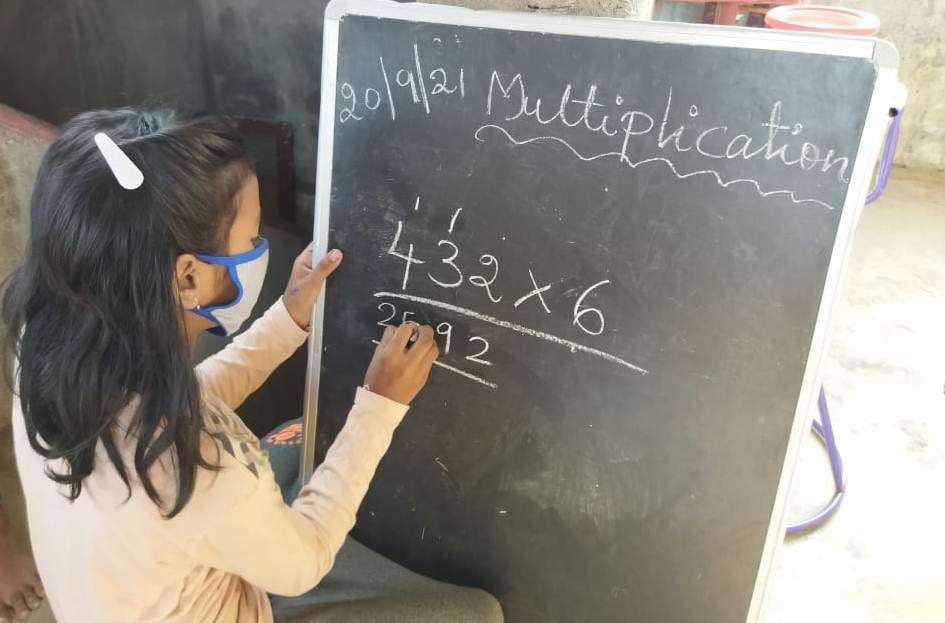 20/9/21 Multiplication
1 1
432 × 6
2592